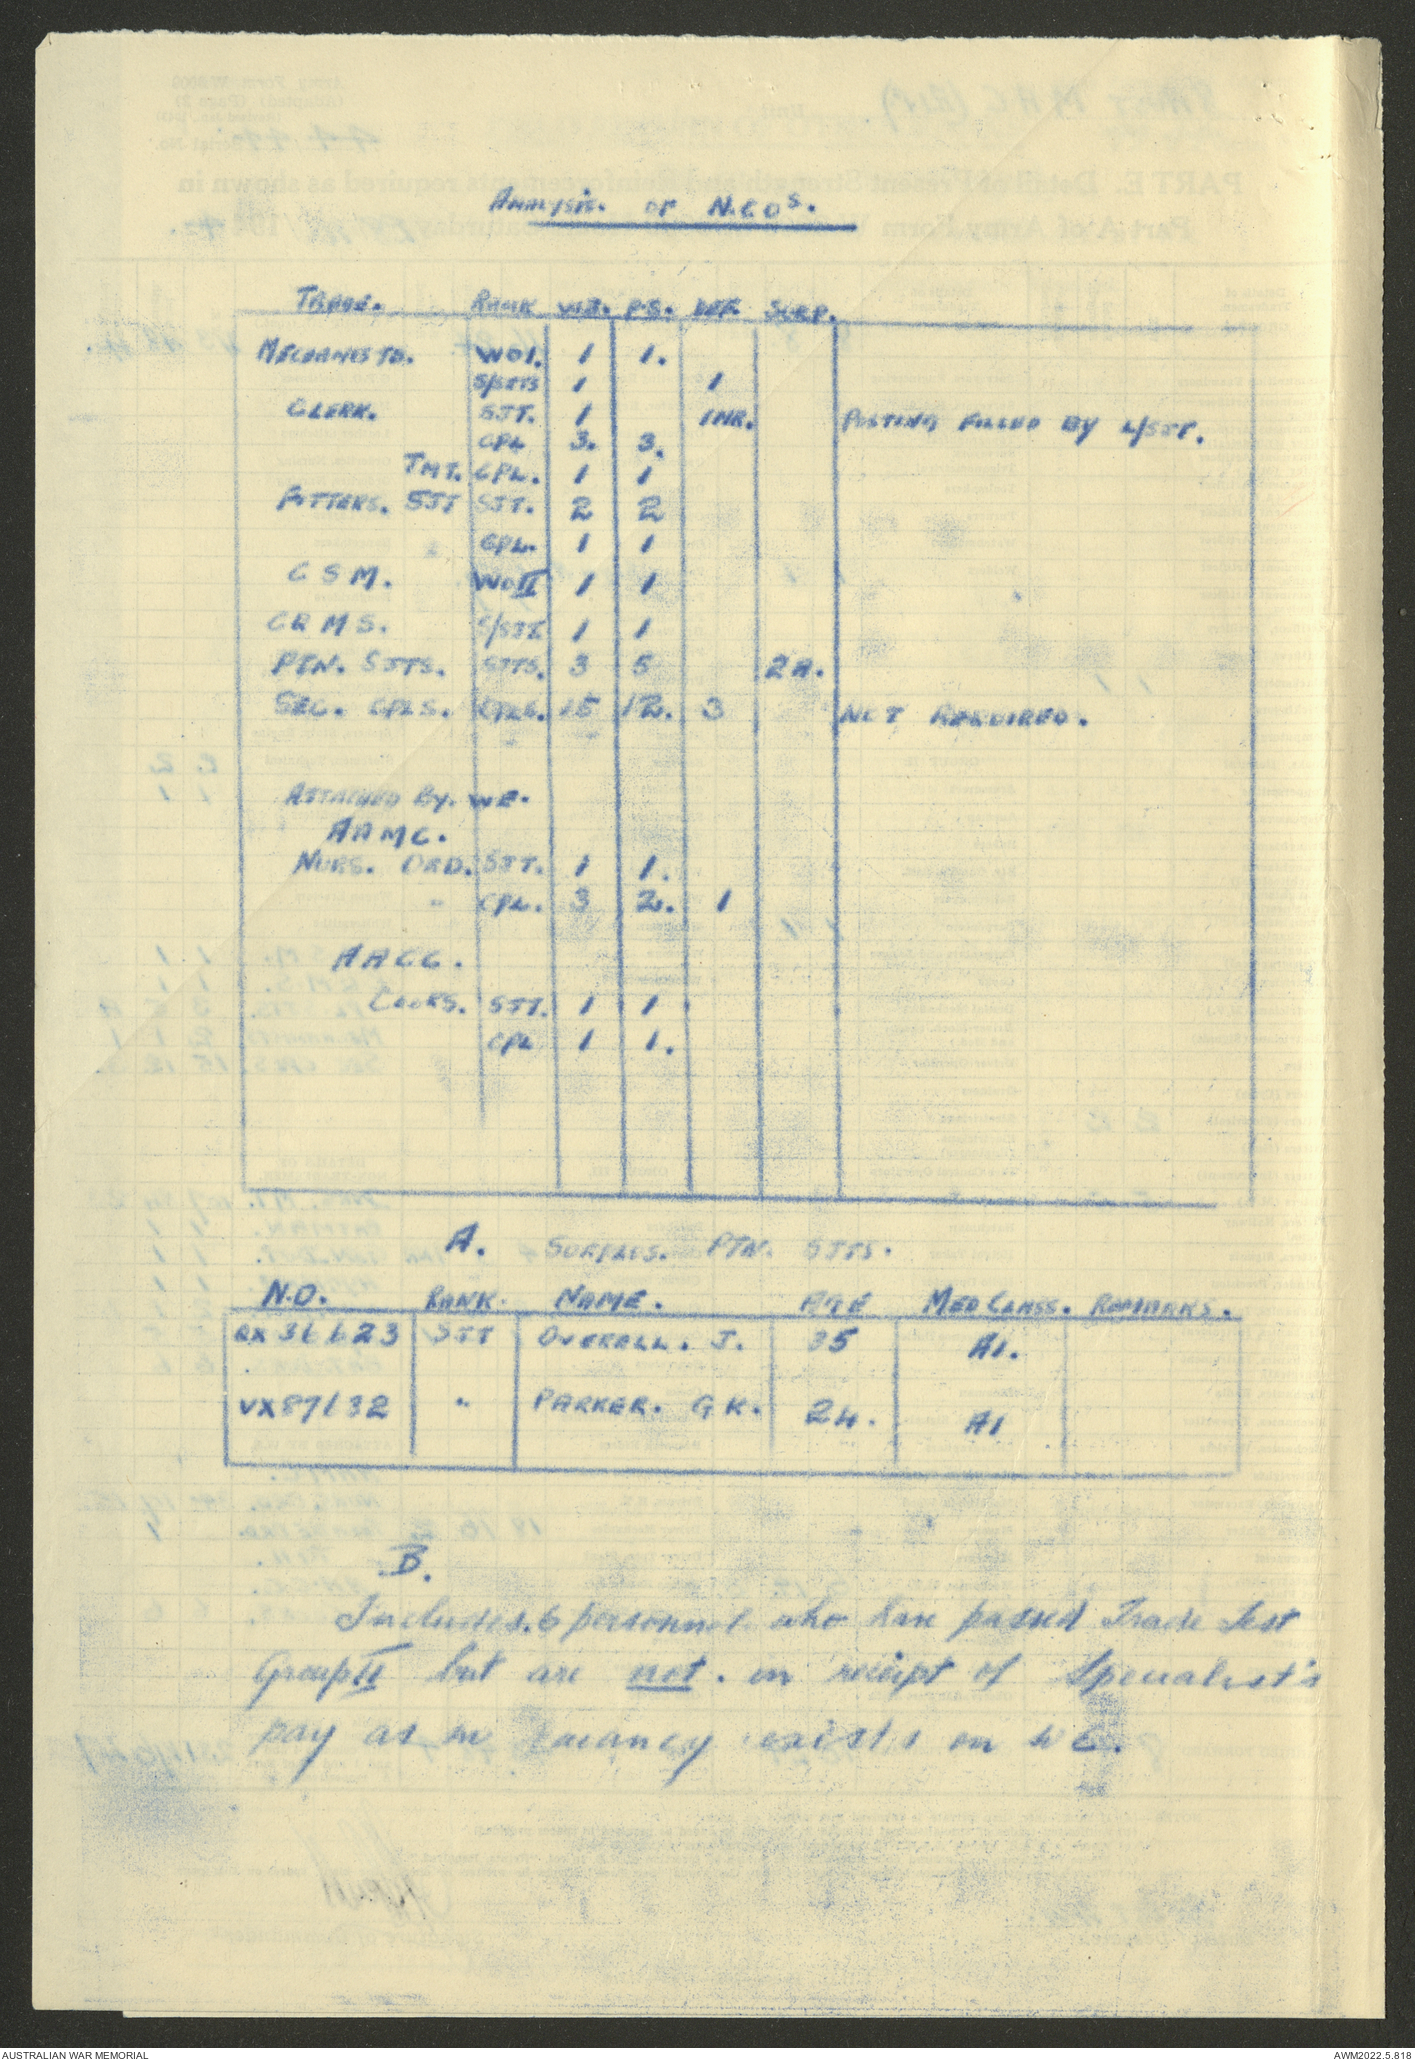 ANALYSIS. OF N.C.Os.
TRADE. RANK W.E. P.S. DEF. SURP.
MECHANISTS. WO1. 1 1.
S/SJTS 1 1
CLERK. SJT. 1 1 NR. POSTING FILLED BY L/SJT.
CPL 3. 3.
TMT. CPL. 1 1
FITTERS. SJT SJT. 2 2
CPL. 1 1
C S M. WO II 1 1
C Q M S. S/SJT. 1 1
PTN. SJTS. SJTS. 3 5 2 A.
SEC. CPLS. CPLS. 15 12. 3 NOT REQUIRED.
ATTACHED BY. W E.
A A M C.
NURS. ORD. SJT. 1 1.
" CPL. 3 2. 1
A A C C.
COOKS. SJT. 1 1
CPL 1 1.
A. SURPLUS. PTN. SJTS.
N.O. RANK. NAME. AGE MED CLASS. REMARKS.
QX36623 SJT OVERALL. J. 35 A1.
VX87132 " PARKER. G K. 24. A1
B.
Includes. 6 personnel who have passed Trade Test
Group II but are not. in receipt of Specialist's
pay as no vacancy exists on W E.
AUSTRALIAN WAR MEMORIAL
AWM2022.5.818